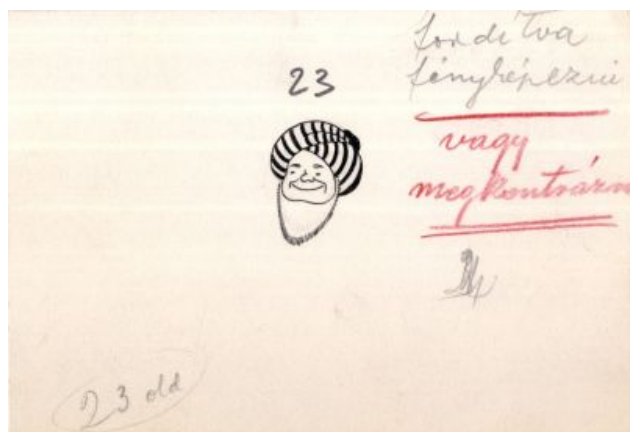 fordítva
fényképezni
23
vagy
megkontrázni
23 old